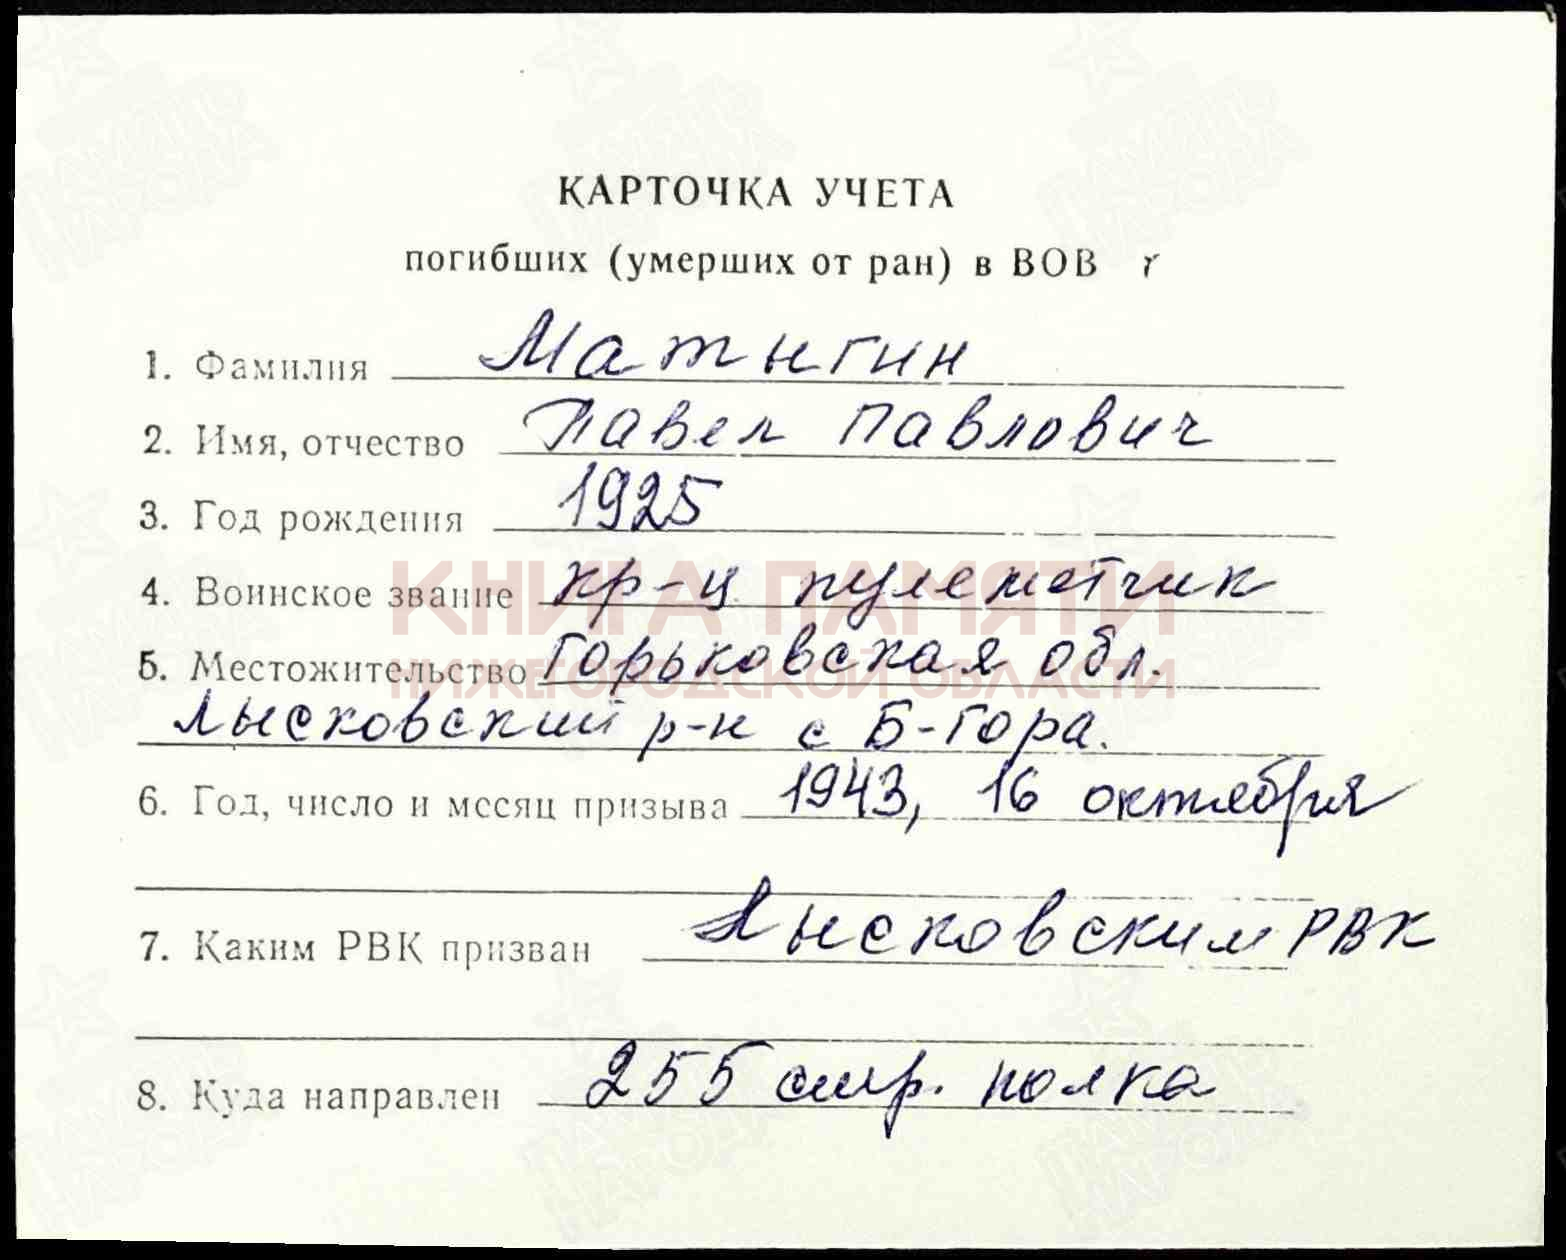 КАРТОЧКА УЧЕТА
погибших (умерших от ран) в ВОВ г
1. Фамилия Матыгин
2. Имя, отчество Павел Павлович
3. Год рождения 1925
4. Воинское звание кр-ц пулеметчик
КНИГА ПАМЯТИ
5. Местожительство Горьковская обл.
НИЖЕГОРОДСКОЙ ОБЛАСТИ
Лысковский р-н с Б-Гора.
6. Год, число и месяц призыва 1943, 16 октября
7. Каким РВК призван Лысковским РВК
8. Куда направлен 255 стр. полка